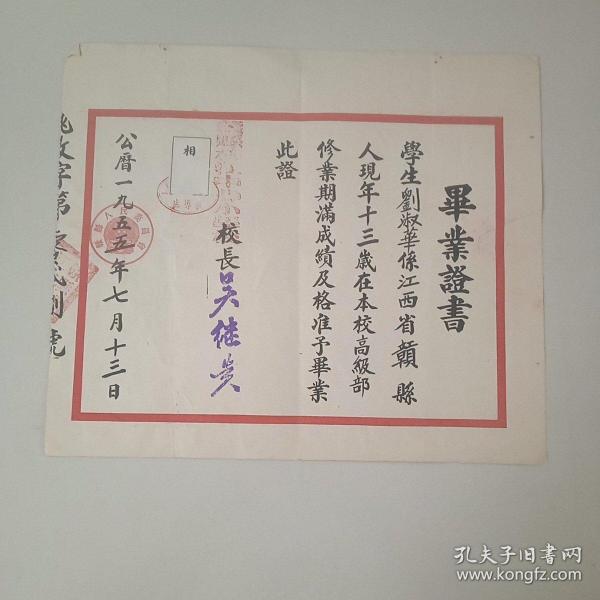 畢業證書
學生劉淑華係江西省贛縣
人現年十三歲在本校高級部
修業期滿成績及格准予畢業
此證
校長
相
公曆一九五五年七月十三日
字第
號
孔夫子旧书网
www.kongfz.com